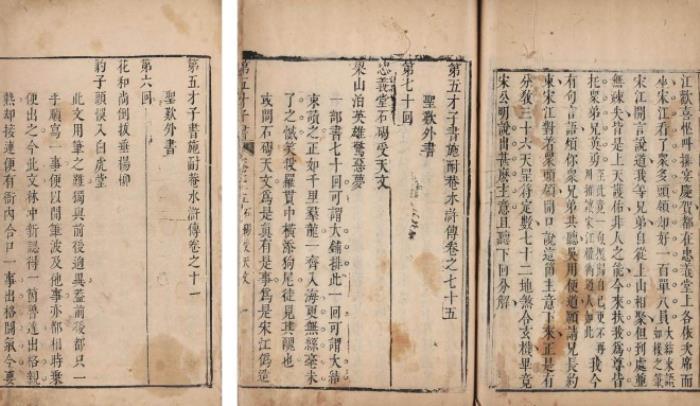 江歡喜便叫排宴慶賀都在忠義堂上各依次席而
坐宋江看了衆多頭領却好一百單八員大結束語如椽之筆
宋江開言說道我等兄弟自從上山相聚但到處並
無疎失皆是上天護佑非人之能今來扶我為尊皆
托衆弟兄英勇我今
有句言語煩你衆兄弟共聽吳用便道願請兄長約
束宋江對着衆頭領開口說這箇主意下來正是有
分敎三十六天罡符定數七十二地煞合玄機畢竟
宋公明說出甚麼主意且聽下回分解
第五才子書施耐菴水滸傳卷之七十五
聖歎外書
第七十回
忠義堂石碣受天文
梁山泊英雄驚惡夢
一部書七十回可謂大鋪排此一回可謂大結
束讀之正如千里羣龍一齊入海更無絲毫未
了之憾笑殺羅貫中橫添狗尾徒見其醜也
或問石碣天文為是眞有是事為是宋江偽造
第五才子書
石碣受天文
第五才子書施耐菴水滸傳卷之十一
聖歎外書
第六回
花和尚倒拔垂楊柳
豹子頭悞入白虎堂
此文用筆之難獨與前後逈異蓋前後都只一
手順寫一事便以閒筆波及他事亦都相時乗
便出之今此文林冲新認得一箇魯達出格親
熱却接連便有衙內合口一事出格鬭氣今要